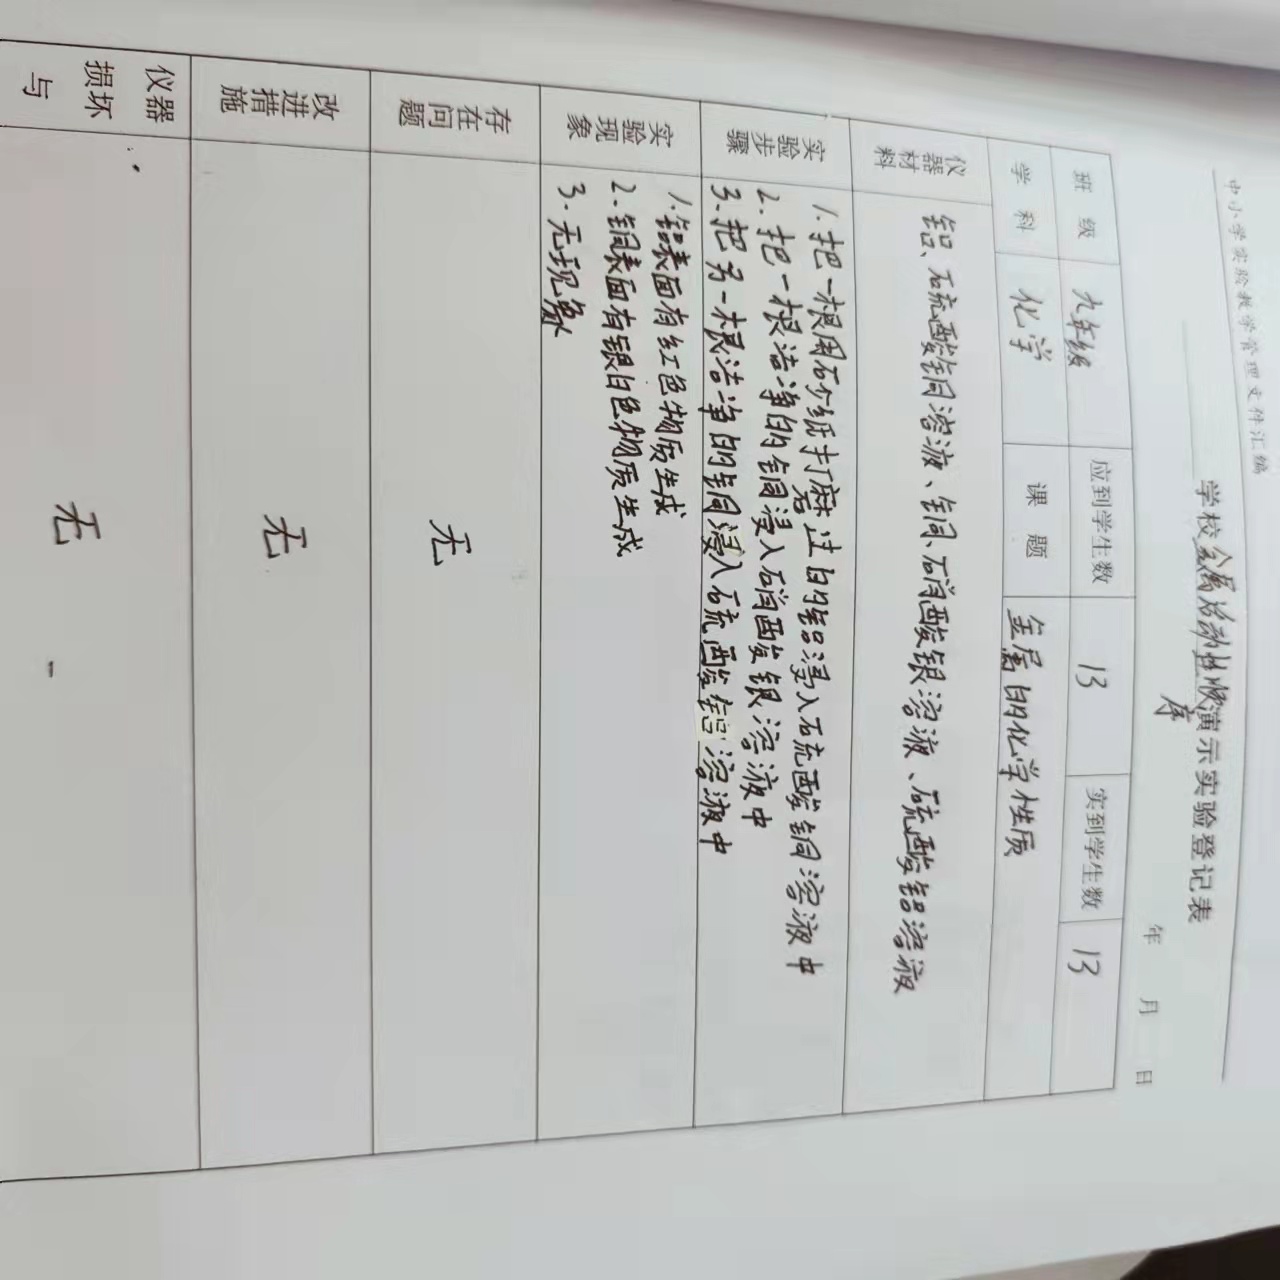 中小学实验教学管理文件汇编
学校金属活动性顺序演示实验登记表
年 月 日
班级 九年级 应到学生数 13 实到学生数 13
学科 化学 课题 金属的化学性质
仪器材料 铝、硫酸铜溶液、铜、硝酸银溶液、硫酸铝溶液
实验步骤
1.把一根用砂纸打磨过的铝浸入硫酸铜溶液中
2.把一根洁净的铜浸入硝酸银溶液中
3.把另一根洁净的铜浸入硫酸铝溶液中
实验现象
1.铝表面有红色物质生成
2.铜表面有银白色物质生成
3.无现象
存在问题 无
改进措施 无
仪器
损坏 无
与